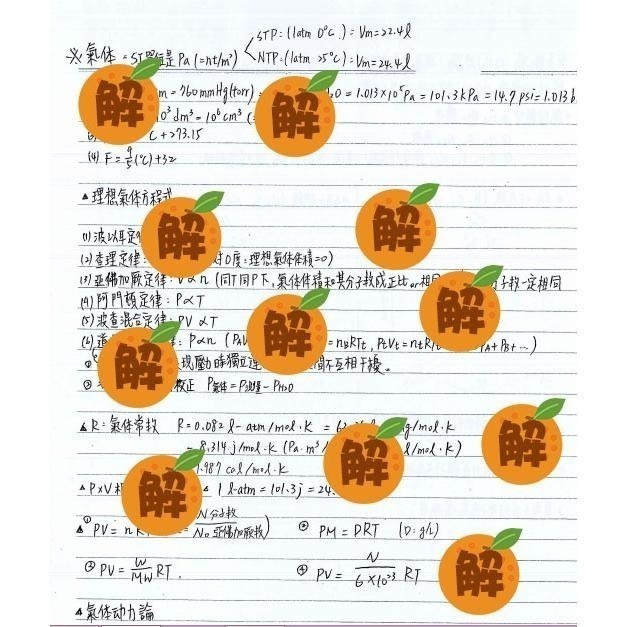 STP:(1atm 0°c):Vm=22.4l
※氣体 = SI單位是Pa(=nt/m²)
NTP:(1atm 25°c):Vm=24.4l
解 m=760mmHg(torr) = 解 O=1.013×10⁵Pa=101.3kPa=14.7psi=1.013b
dm³=10⁶cm³(
C+273.15
(4) F=9/5(°c)+32
▲理想氣体方程式
解 解
(1)波以耳定
(2)查理定律: 0度:理想氣體体積=0)
(3)亞佛加厥定律:V∝n(同T同P下,氣体体積和其分子数成正比or相同 解 子数一定相同
(4)阿門頓定律:P∝T
(5)波查混合定律:PV∝T 解
(6)道 :P∝n(PAV =nBRTt, PtVt=ntR PA+PB+…)
① 解 現壓力時獨立 不互相干擾。
② 校正 P氣体=P測量-PH₂O
▲R:氣体常数 R=0.082l-atm/mol·K = 6 g/mol·K
=8.314j/mol·K(Pa·m³/ 解 l/mol·K) 解
1.987cal/mol·K
▲P×V 解 1l-atm=101.3j=24.
▲①PV=n N分子数/N₀亞佛加厥数) ②PM=DRT (D:g/L)
③PV=W/MW RT. ④PV=N/6×10²³ RT 解
▲氣体动力論